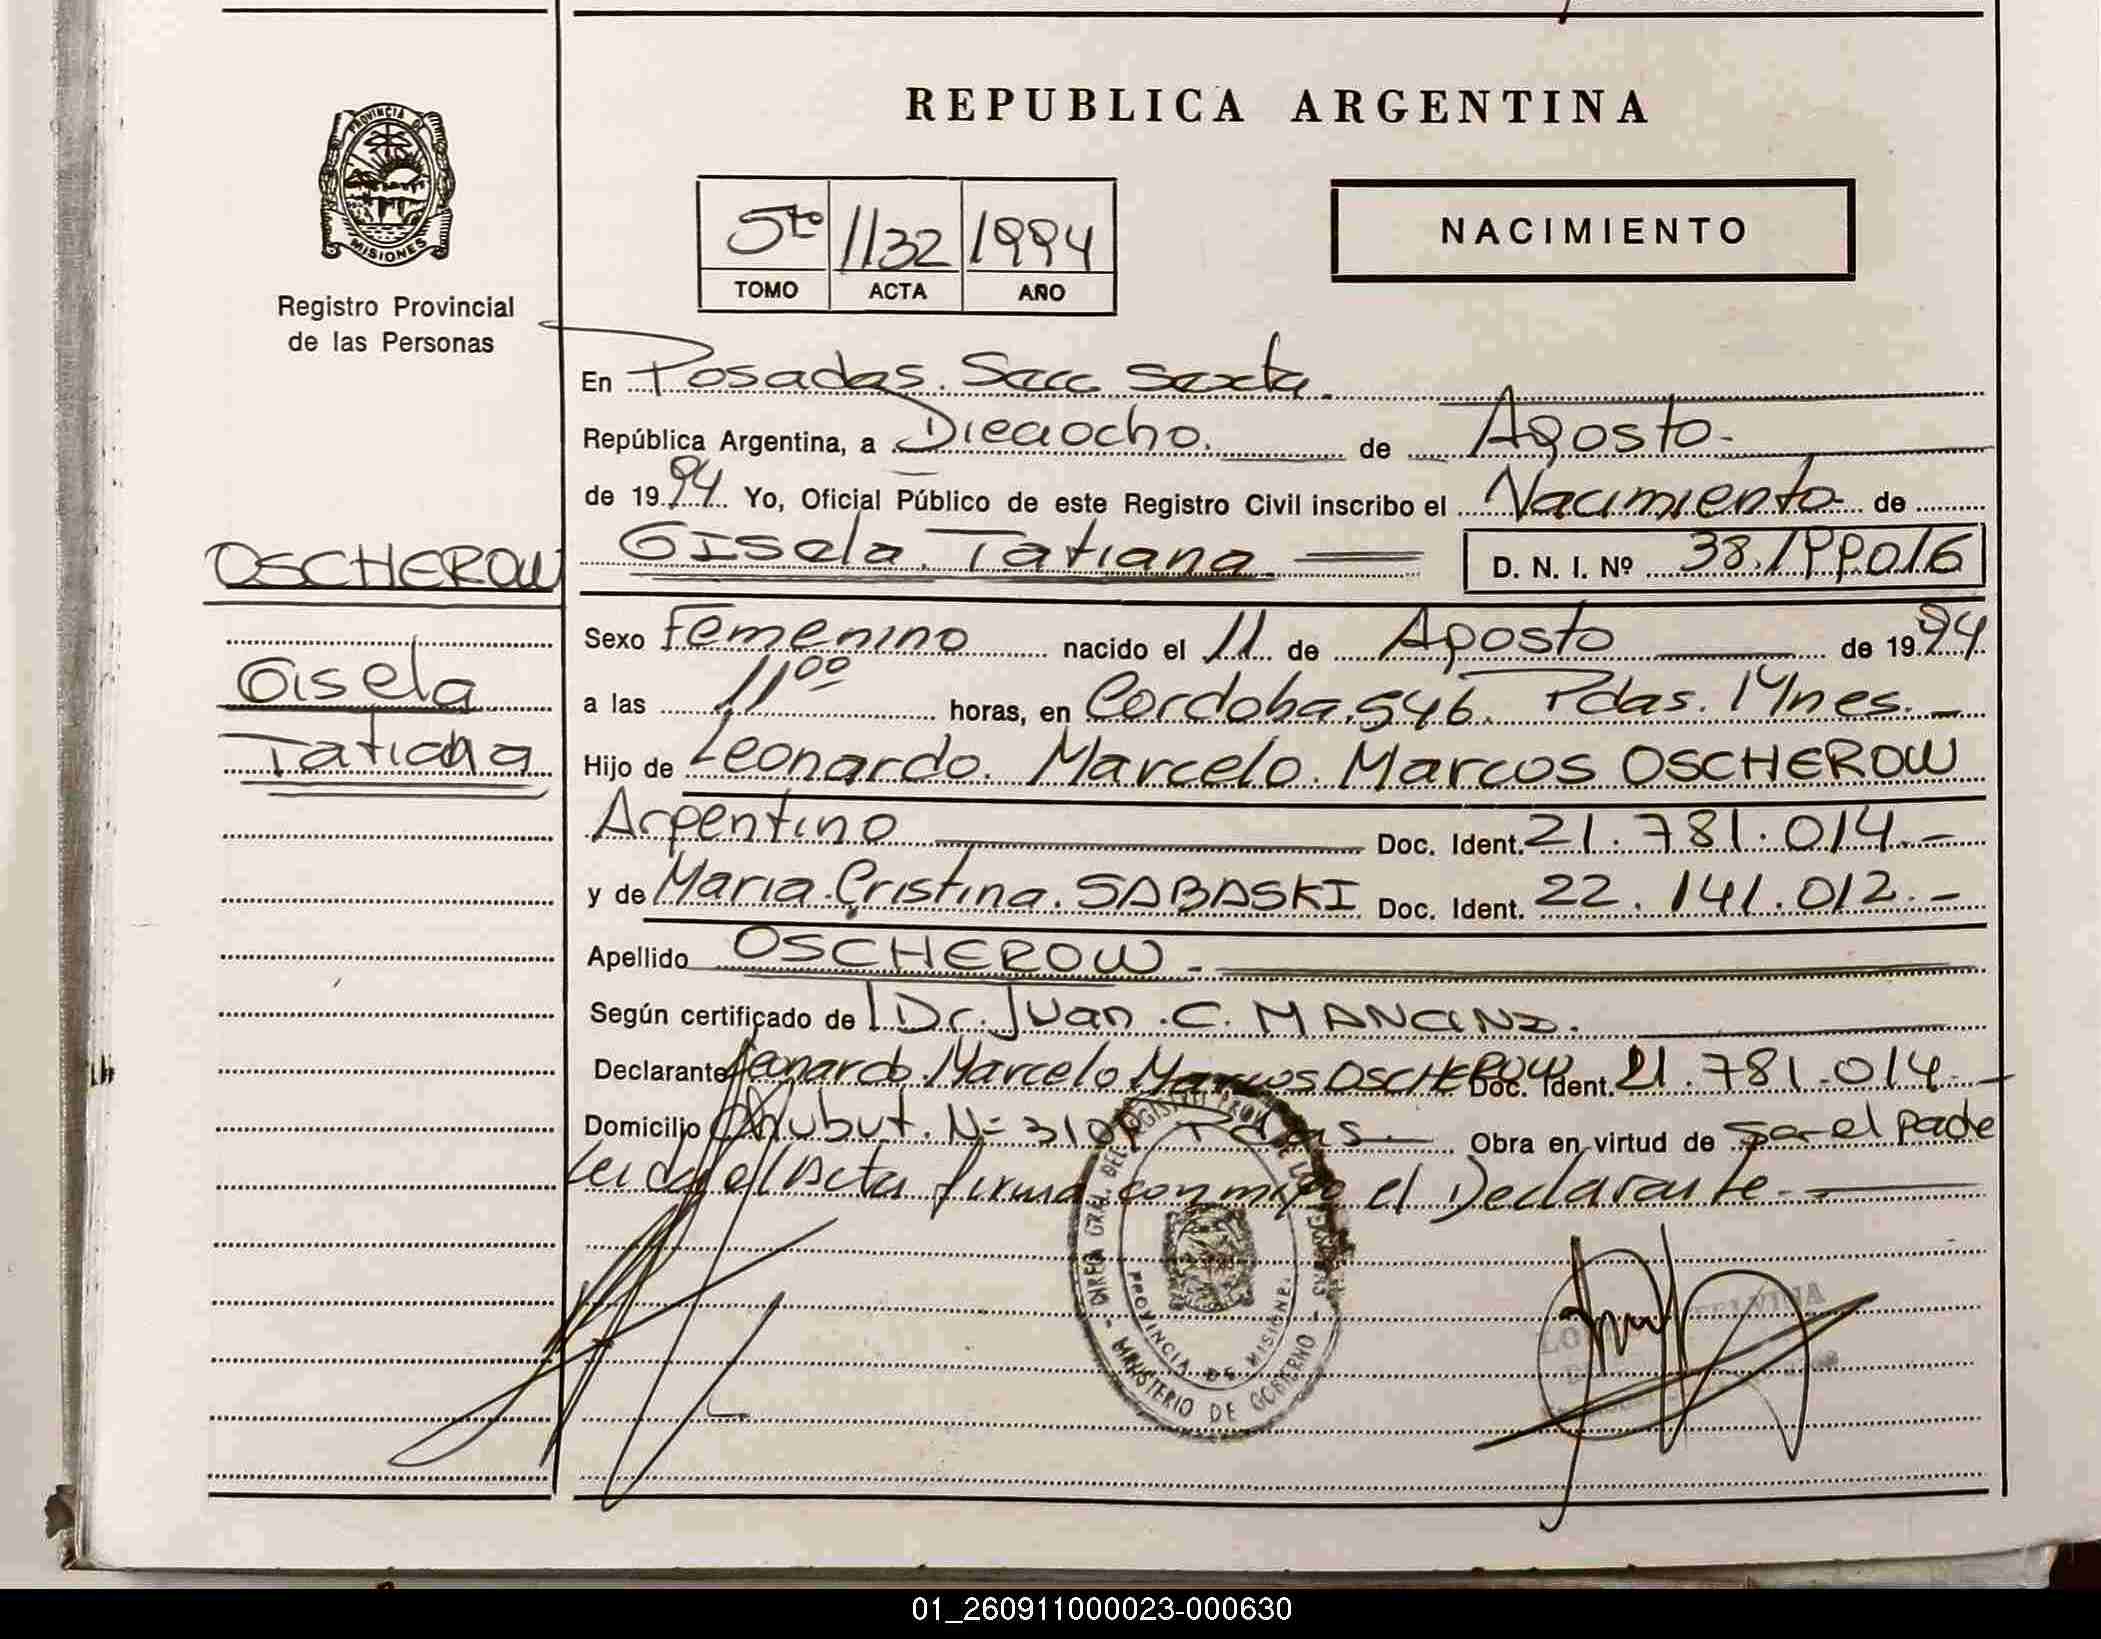 PROVINCIA DE
MISIONES
Registro Provincial
de las Personas
REPUBLICA ARGENTINA
5to 1132 1994
TOMO ACTA AÑO
NACIMIENTO
En Posadas. Secc. Sexta.
República Argentina, a Dieciocho. de Agosto.
de 1994 Yo, Oficial Público de este Registro Civil inscribo el Nacimiento de
OSCHEROW
Gisela. Tatiana D. N. I. Nº 38.199016
Sexo Femenino nacido el 11 de Agosto de 1994
Gisela
a las 11 00 horas, en Cordoba. 546. Pdas. Mnes.-
Tatiana
Hijo de Leonardo. Marcelo. Marcos OSCHEROW
Argentino Doc. Ident. 21.781.014.-
y de Maria Cristina. SABASKI Doc. Ident. 22.141.012.-
Apellido OSCHEROW.-
Según certificado de Dr. Juan. C.
Declarante Leonardo. Marcelo Marcos OSCHEROW Doc. Ident. 21.781.014.-
Domicilio Chubut. Nº Pdas. Obra en virtud de ser el padre
Leida el Acta firma conmigo el Declarante.-
PROVINCIA DE MISIONES
MINISTERIO DE GOBIERNO
01_260911000023-000630